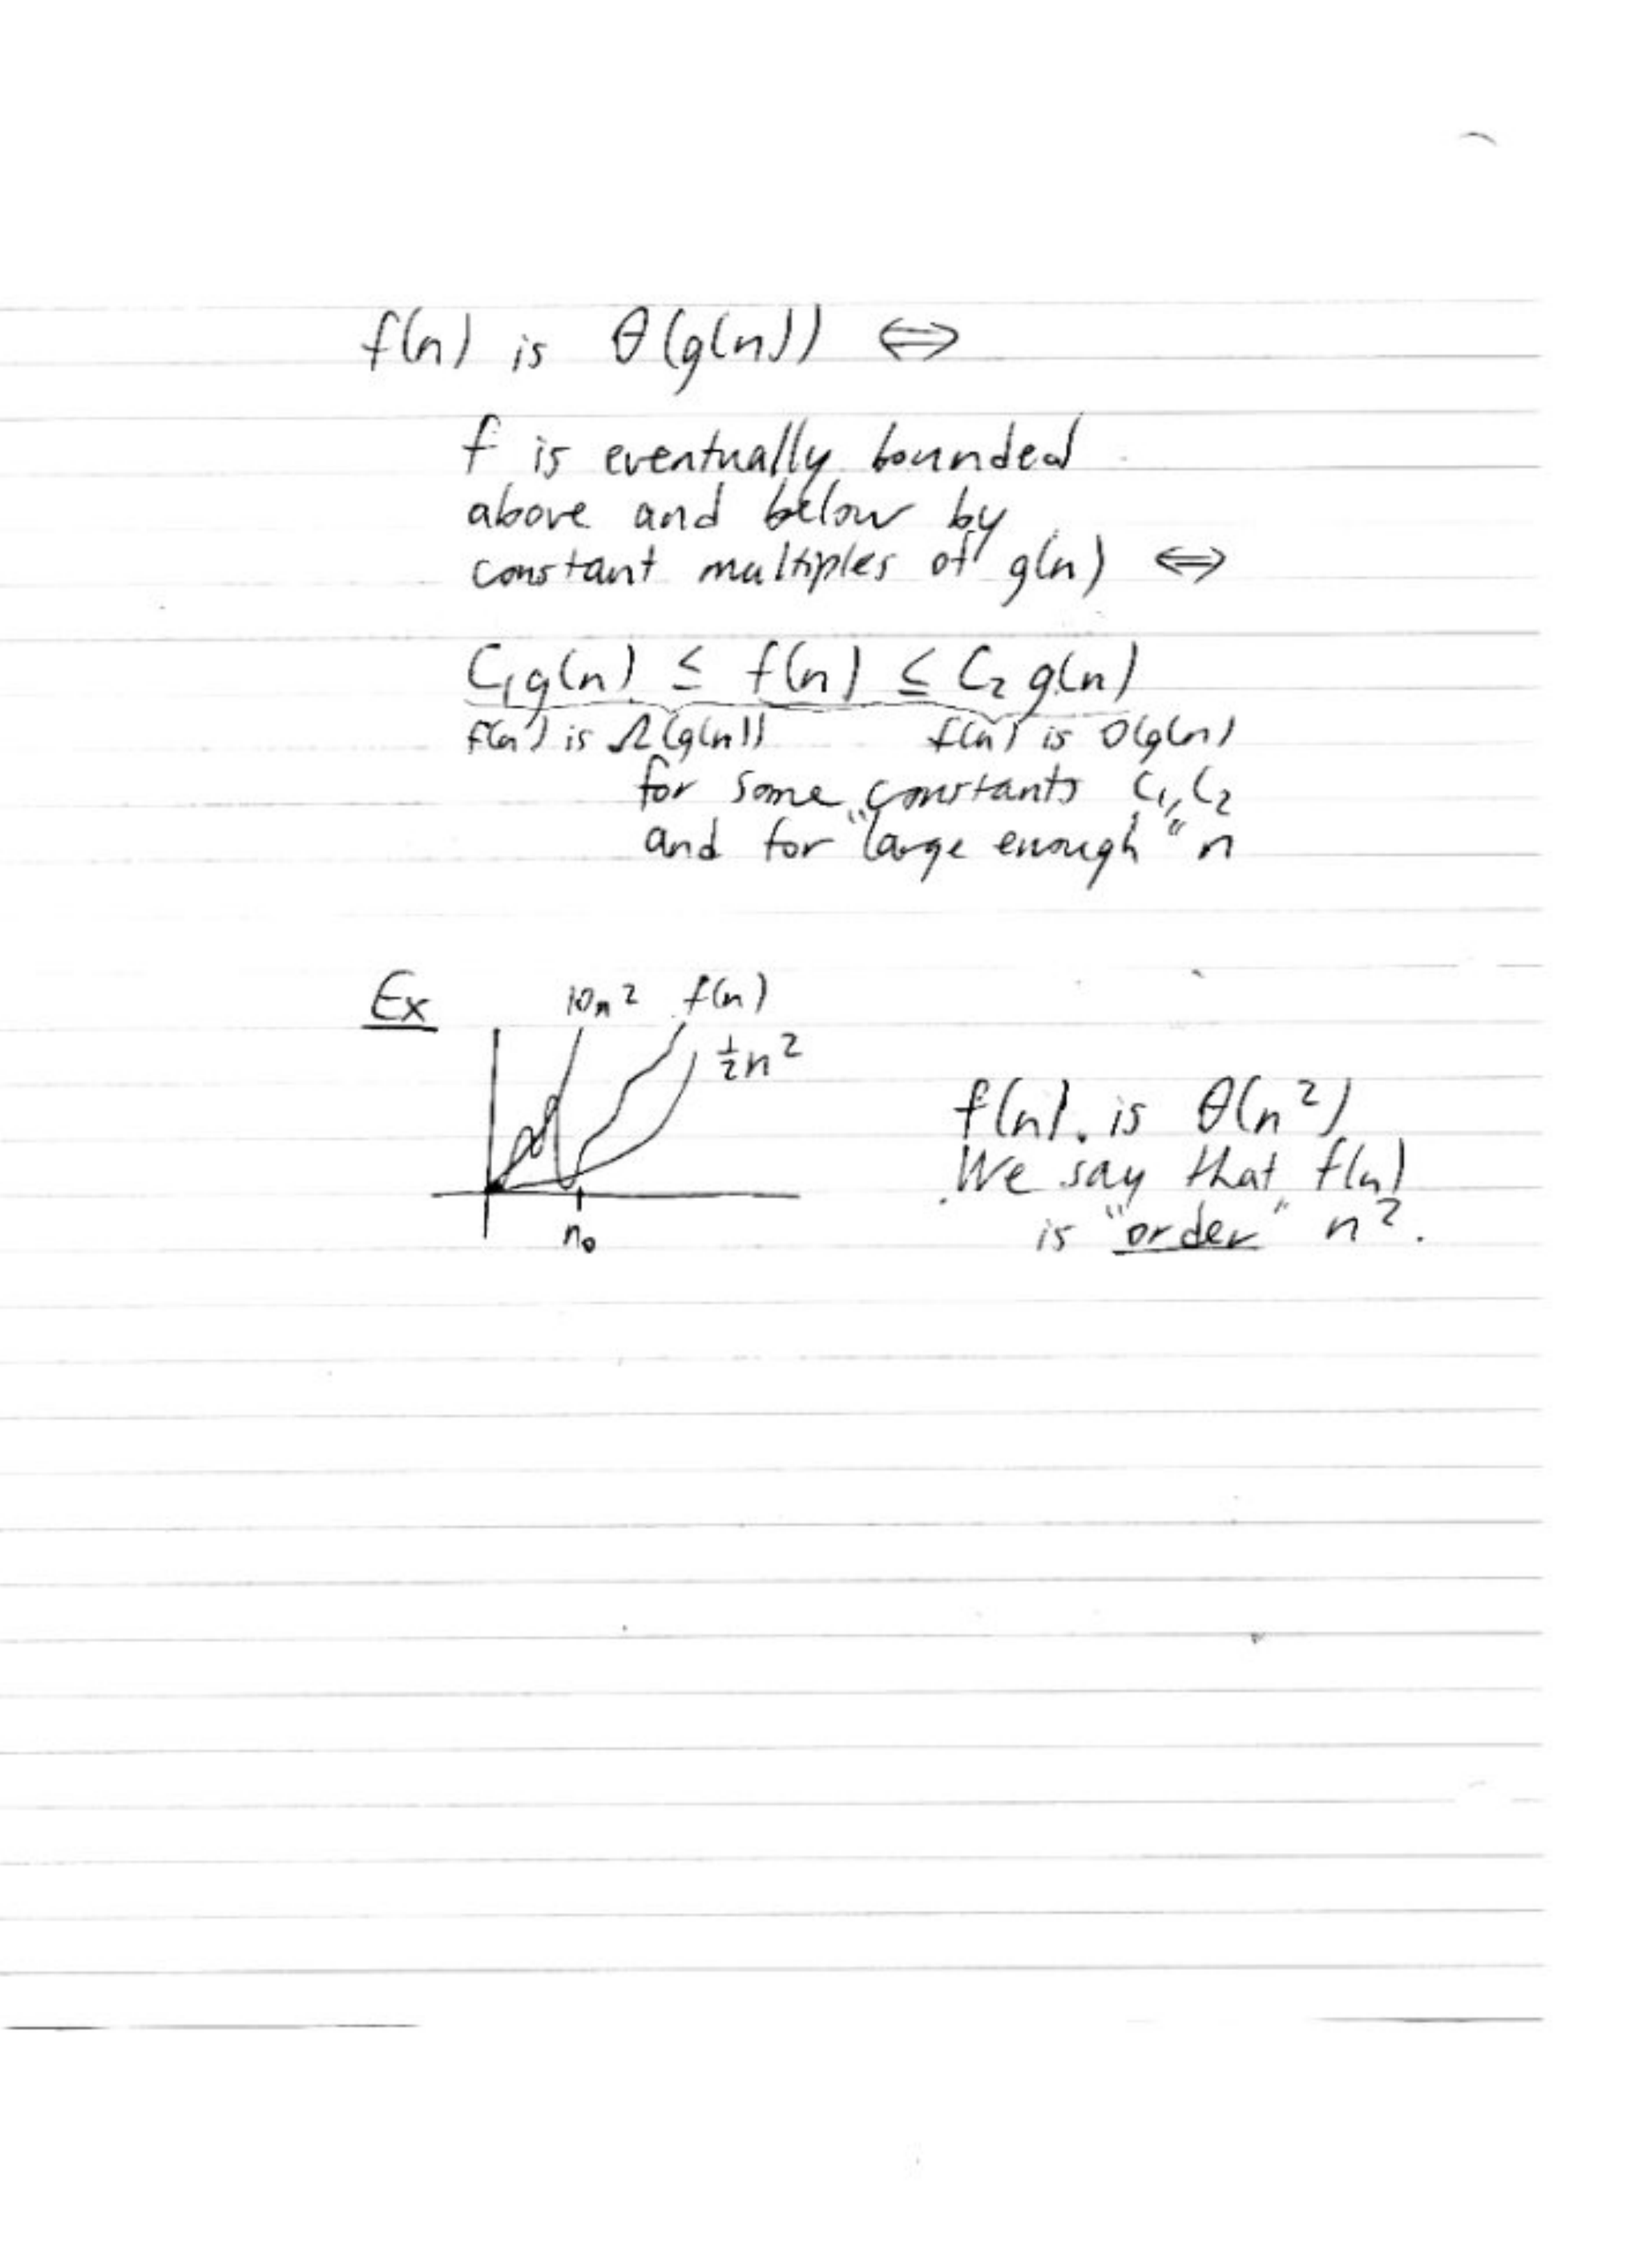 f(n) is θ(g(n)) ⟺
f is eventually bounded
above and below by
constant multiples of g(n) ⟺
C₁g(n) ≤ f(n) ≤ C₂ g(n)
f(n) is Ω(g(n)) f(n) is O(g(n))
for some constants C₁, C₂
and for "large enough" n
Ex 10n² f(n)
½n²
f(n) is θ(n²)
We say that f(n)
is "order" n².
n₀